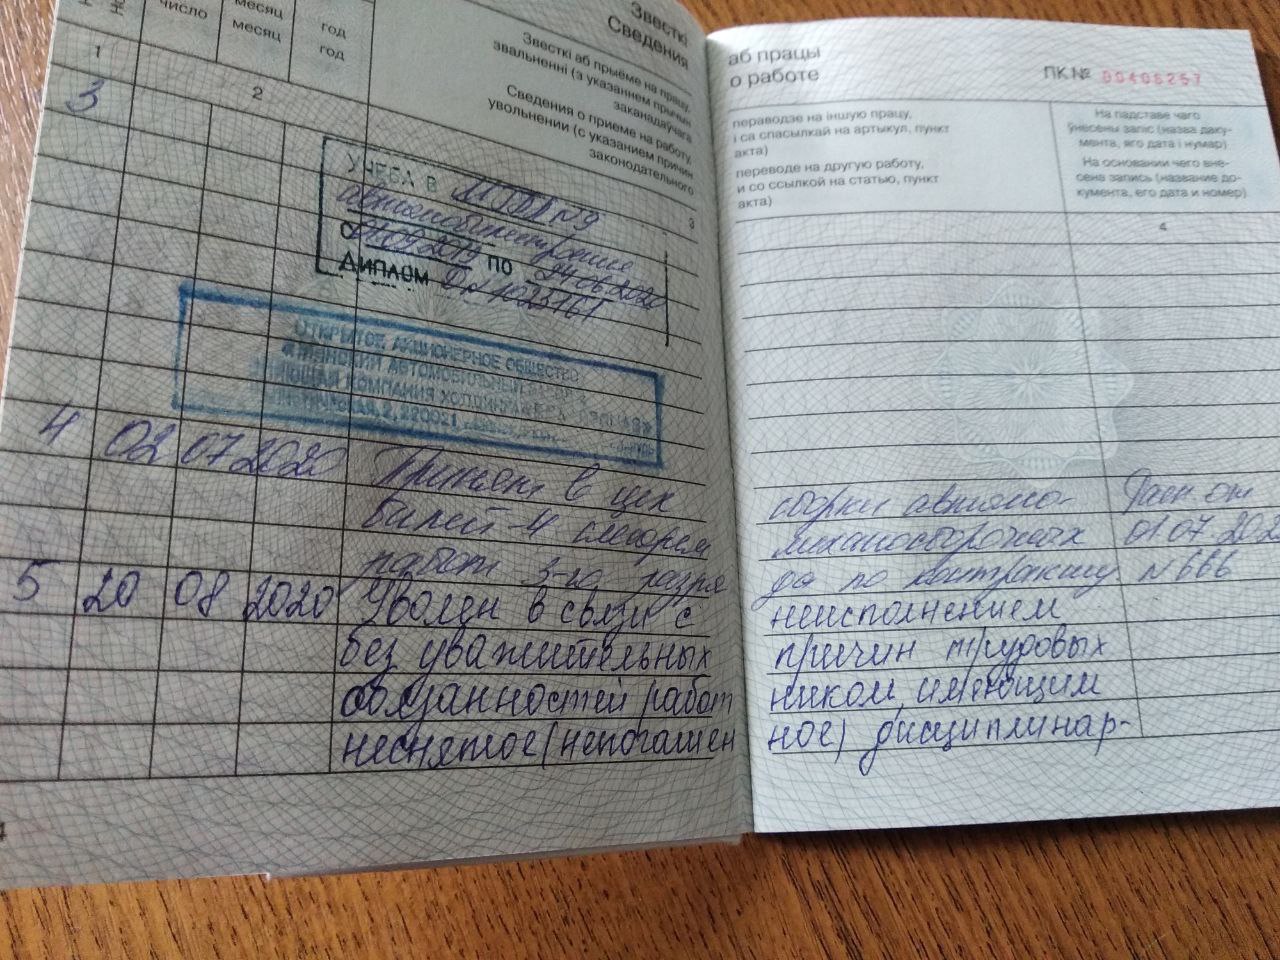 число
месяц
месяц
год
год
Звесткі
Сведения
Звесткі аб прыёме на працу,
звальненні (з указаннем прычын
заканадаўчага
Сведения о приеме на работу,
увольнении (с указанием причин
законодательного
1
2
3
3
УЧЕБА В МГПЛ №9
автомобилестроения
С 01.09.2019 ПО 24.06.2020
ДИПЛОМ
ОТКРЫТОЕ АКЦИОНЕРНОЕ ОБЩЕСТВО
АВТОМОБИЛЬНЫЙ
КОМПАНИЯ ХОЛДИНГА
2, 220021
4 02 07 2020 Принят в цех
билей-4 слесарем
работ 3-го разря
5 20 08 2020 Уволен в связи с
без уважительных
обязанностей работ
неснятое (непогашен
4
аб працы
о работе
ПК № 00406257
пераводзе на іншую працу,
і са спасылкай на артыкул, пункт
акта)
переводе на другую работу,
и со ссылкой на статью, пункт
акта)
На падставе чаго
ўнесены запіс (назва даку-
мента, яго дата і нумар)
На основании чего вне-
сена запись (название до-
кумента, его дата и номер)
4
сборки автомо- от
механосборочных 01.07.202
да по контракту. №666
неисполнением
причин трудовых
ником, имеющим
ное) дисциплинар-